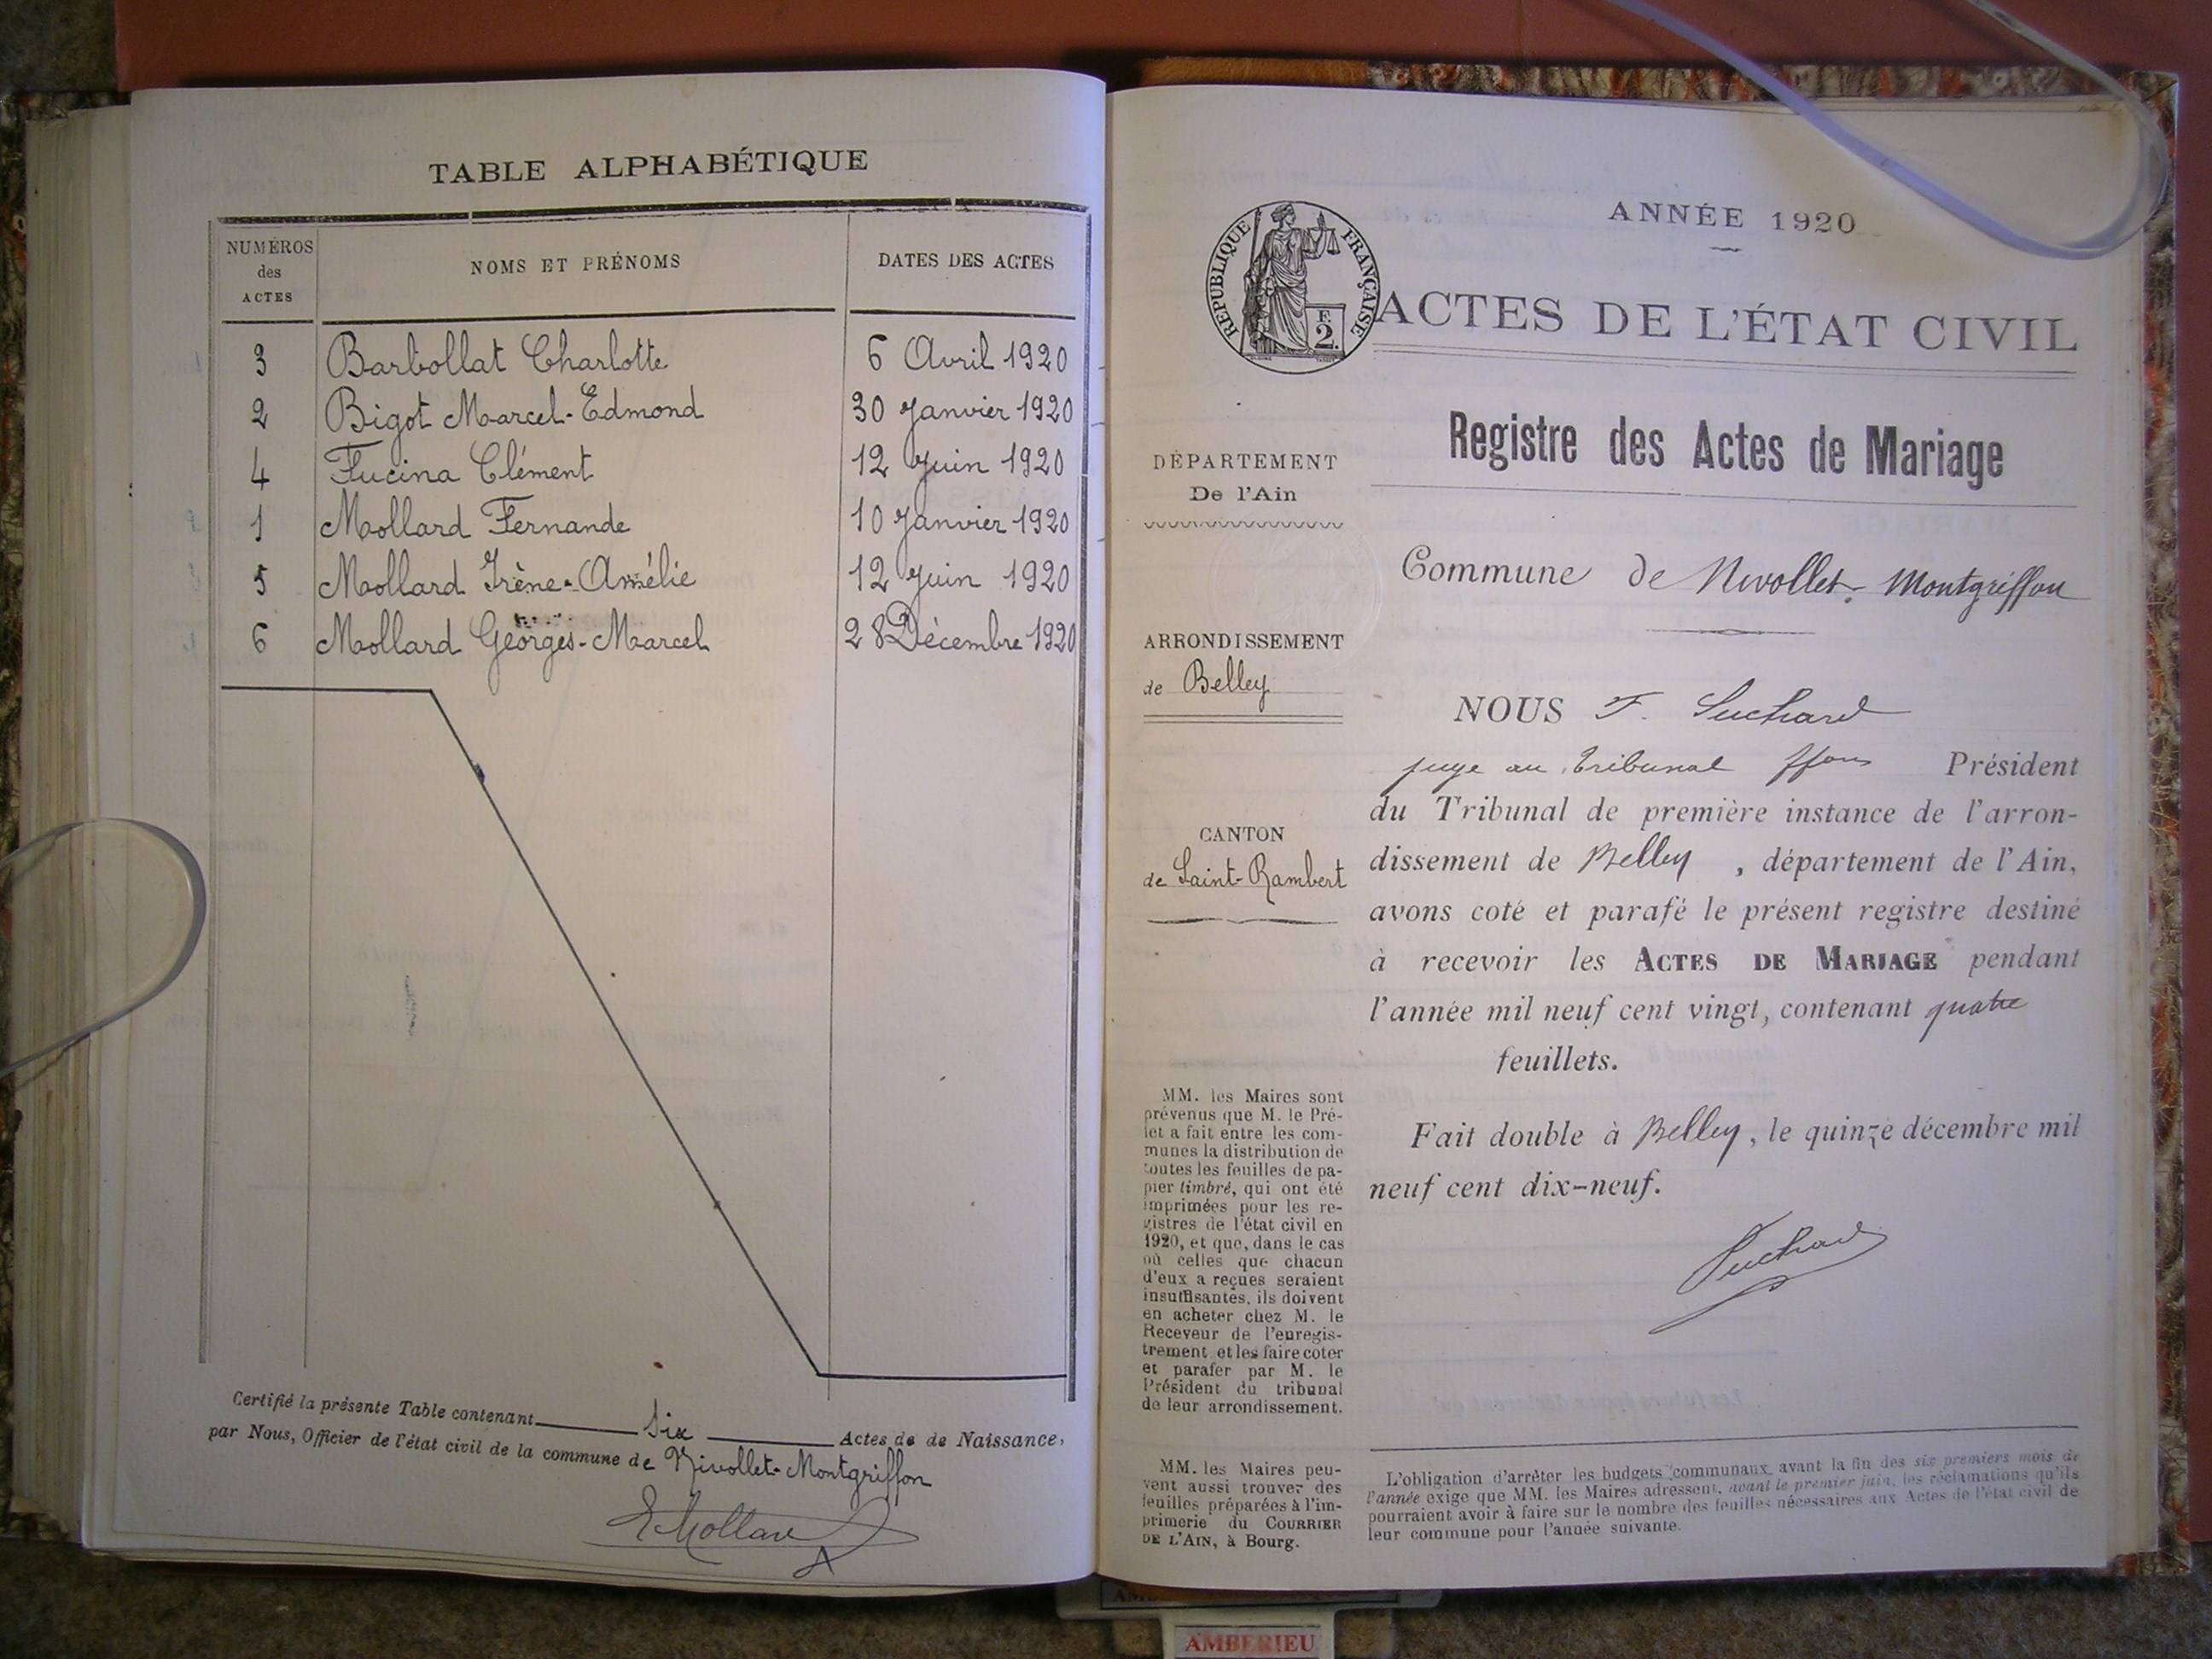 TABLE ALPHABÉTIQUE
NUMÉROS
des
ACTES
NOMS ET PRÉNOMS
DATES DES ACTES
3 Barbollat Charlotte 6 Avril 1920
2 Bigot Marcel-Edmond 30 Janvier 1920
4 Fucina Clément 12 Juin 1920
1 Mollard Fernande 10 Janvier 1920
5 Mollard Irène-Amélie 12 Juin 1920
6 Mollard Georges-Marcel 28 Décembre 1920
Certifié la présente Table contenant six Actes de de Naissance,
par Nous, Officier de l'état civil de la commune de Nivollet-Montgriffon
E Mollard
ANNÉE 1920
RÉPUBLIQUE FRANÇAISE
F.
2.
ACTES DE L'ÉTAT CIVIL
Registre des Actes de Mariage
DÉPARTEMENT
De l'Ain
Commune de Nivollet-Montgriffon
ARRONDISSEMENT
de Belley
CANTON
de Saint-Rambert
NOUS F. Suchard
juge au tribunal ffons Président
du Tribunal de première instance de l'arron-
dissement de Belley, département de l'Ain,
avons coté et parafé le présent registre destiné
à recevoir les ACTES DE MARIAGE pendant
l'année mil neuf cent vingt, contenant quatre
feuillets.
Fait double à Belley, le quinze décembre mil
neuf cent dix-neuf.
Suchard
MM. les Maires sont
prévenus que M. le Pré-
fet a fait entre les com-
munes la distribution de
toutes les feuilles de pa-
pier timbré, qui ont été
imprimées pour les re-
gistres de l'état civil en
1920, et que, dans le cas
où celles que chacun
d'eux a reçues seraient
insuffisantes, ils doivent
en acheter chez M. le
Receveur de l'enregis-
trement et les faire coter
et parafer par M. le
Président du tribunal
de leur arrondissement.
MM. les Maires peu-
vent aussi trouver des
feuilles préparées à l'im-
primerie du COURRIER
DE L'AIN, à Bourg.
L'obligation d'arrêter les budgets communaux avant la fin des six premiers mois de
l'année exige que MM. les Maires adressent, avant le premier juin, les réclamations qu'ils
pourraient avoir à faire sur le nombre des feuilles nécessaires aux Actes de l'état civil de
leur commune pour l'année suivante.
AMBERIEU